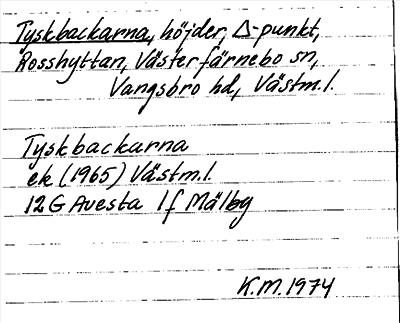 Tyskbackarna, höjder, Δ-punkt,
Rosshyttan, Västerfärnebo sn,
Vangsbro hd, Västm.l.
Tyskbackarna
ek (1965) Västm.l.
12G Avesta 1f Mälby
K.M. 1974